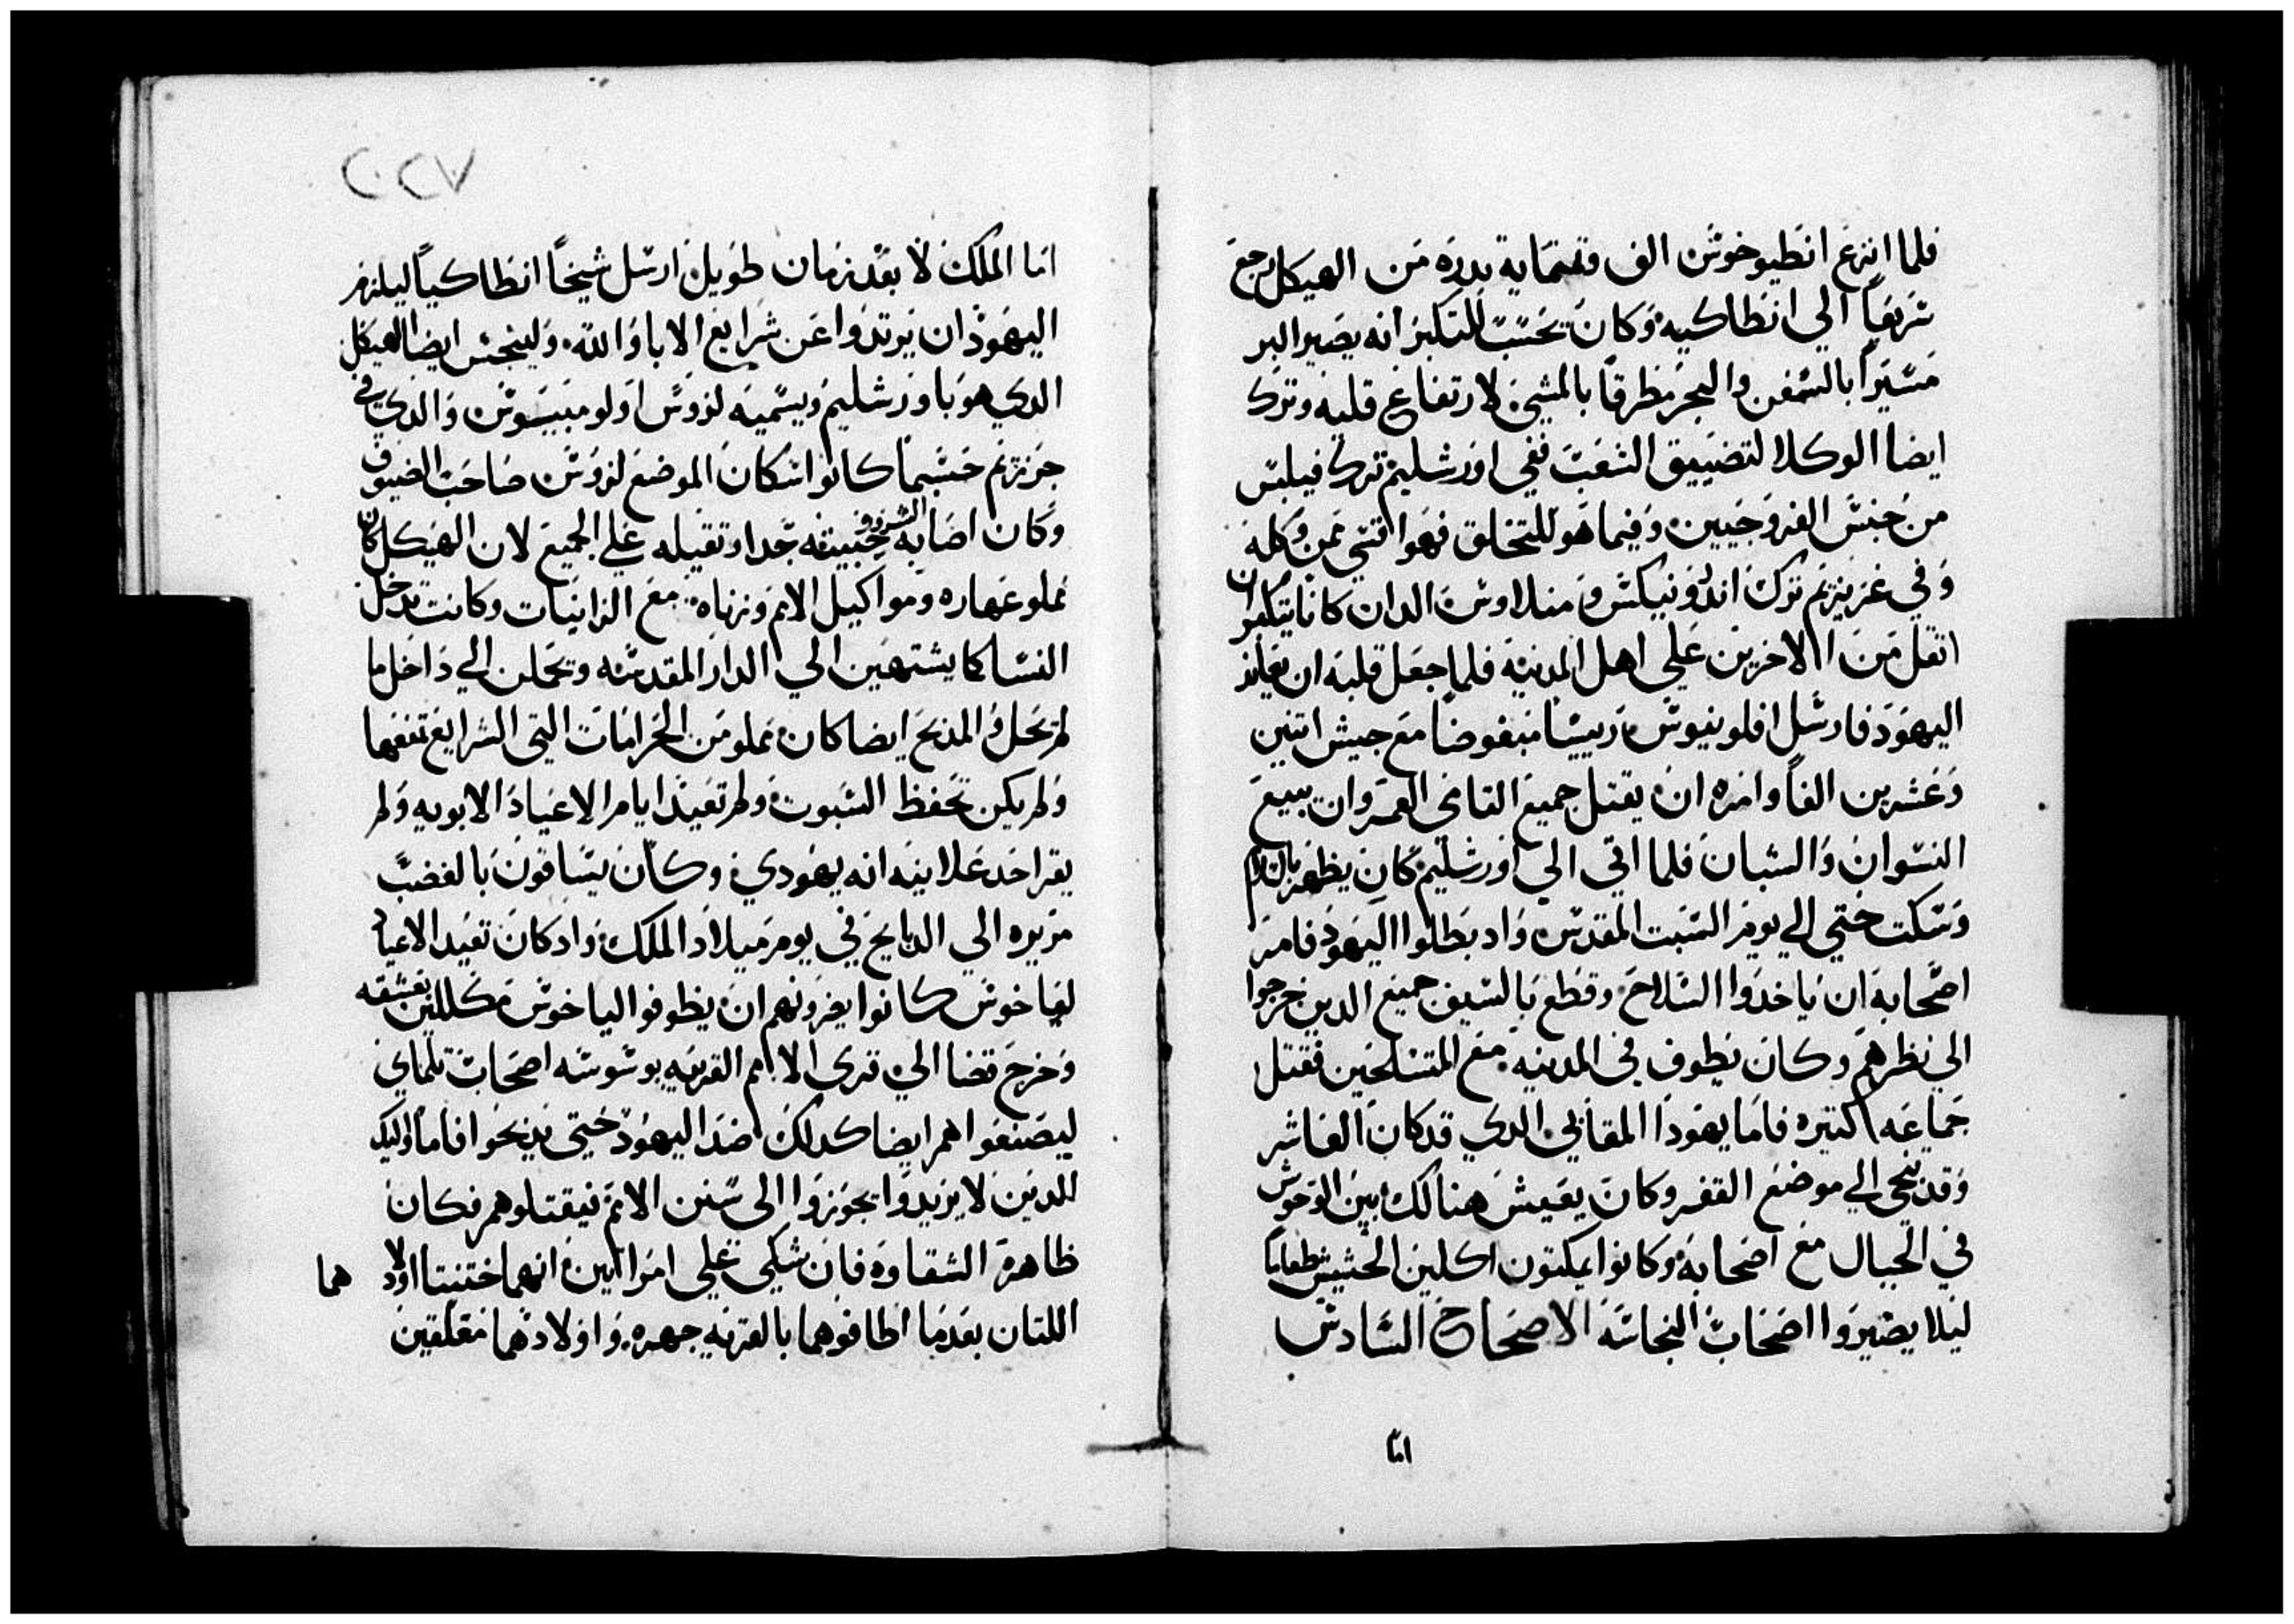 فلما انزع انطيوخوس الف وثمنماية بدره من الهيكل رجع
سريعاً الي انطاكيه وكان يحسب للتكبر انه يصير البر
مسيراً بالسفن والبحر مطرقاً بالمشي لارتفاع قلبه وترك
ايضا الوكلا لتضييق الشعب ففي اورشليم ترك فيلبس
من جنس الفروجيين وفيما هو للتخلق فهو اقسي ممن وكله
وفي غريزيم ترك اندرونيكس ومنلاوس الدان كانا يتكبران
اتقل من الاخرين علي اهل المدينه فلما جعل قلبه ان يعاند
اليهود فارسل افلونيوس رييسا مبغوضا مع جيش اتنين
وعشرين الفاً وامره ان يقتل جميع التامي العمر وان يبيع
النسوان والشبان فلما اتي الي اورشليم كان يظهر بالسلام
وسكت حتي الي يوم السبت المقدس واد بطلوا اليهود فامر
اصحابه ان ياخدوا السلاح وقطع بالسيف جميع الدين خرجوا
الي نظرهم وكان يطوف في المدينه مع المتسلحين فقتل
جماعه كتيره فاما يهودا المقابي الدي قد كان العاشر
وقد نحي الي موضع القفر وكان يعيش هنالك بين الوحوش
في الجبال مع اصحابه وكانوا يمكتون اكلين الحشيش طعاما
ليلا يصيروا اصحاب النجاسه الاصحاح السادس
اما
٢٢٧
اما الملك لا بعد زمان طويل ارسل شيخاً انطاكياً ليلزم
اليهود ان يرتدوا عن شرايع الابا والله ولينجس ايضا الهيكل
الدي هو باورشليم ويسميه لزوس اولومبيسوس والدي في
جرزيم حسبما كانوا سكان الموضع لزوس صاحب الضيوف
وكان اصابه الشرور خبيثه جدا وتقيله علي الجميع لان الهيكل كان
مملو عهاره ومواكيل الامم وزناه مع الزانيات وكانت تدخل
النسا كما يشتهين الي الدار المقدسه وتحملن الي داخل ما
لم يحل والمدبح ايضا كان مملو من الحرامات التي الشرايع تمنعها
ولم يكن تحفظ السبوت ولم تعيد ايام الاعياد الابويه ولم
يقر احد علانيه انه يهودي وكان يساقون بالغضب
مريره الي الدبايح في يوم ميلاد الملك واد كان تعيد الاعياد
لباخوس كانوا يغزونهم ان يطوفوا الباخوس مكللين بعشقه
وخرج قضا الي قري الامم القريبه بوسوسه اصحاب تلماي
ليصنعوا هم ايضا كدلك ضد اليهود حتي يدبحوا فاما اوليك
الدين لا يريدوا يجوزوا الي سنن الامم فيقتلوهم فكان
ظاهرة الشقاوه فان شكي علي امراتين انهما ختنتا اولادهما
اللتان بعدما اطافوهما بالقريه جهره واولادهما معلقين